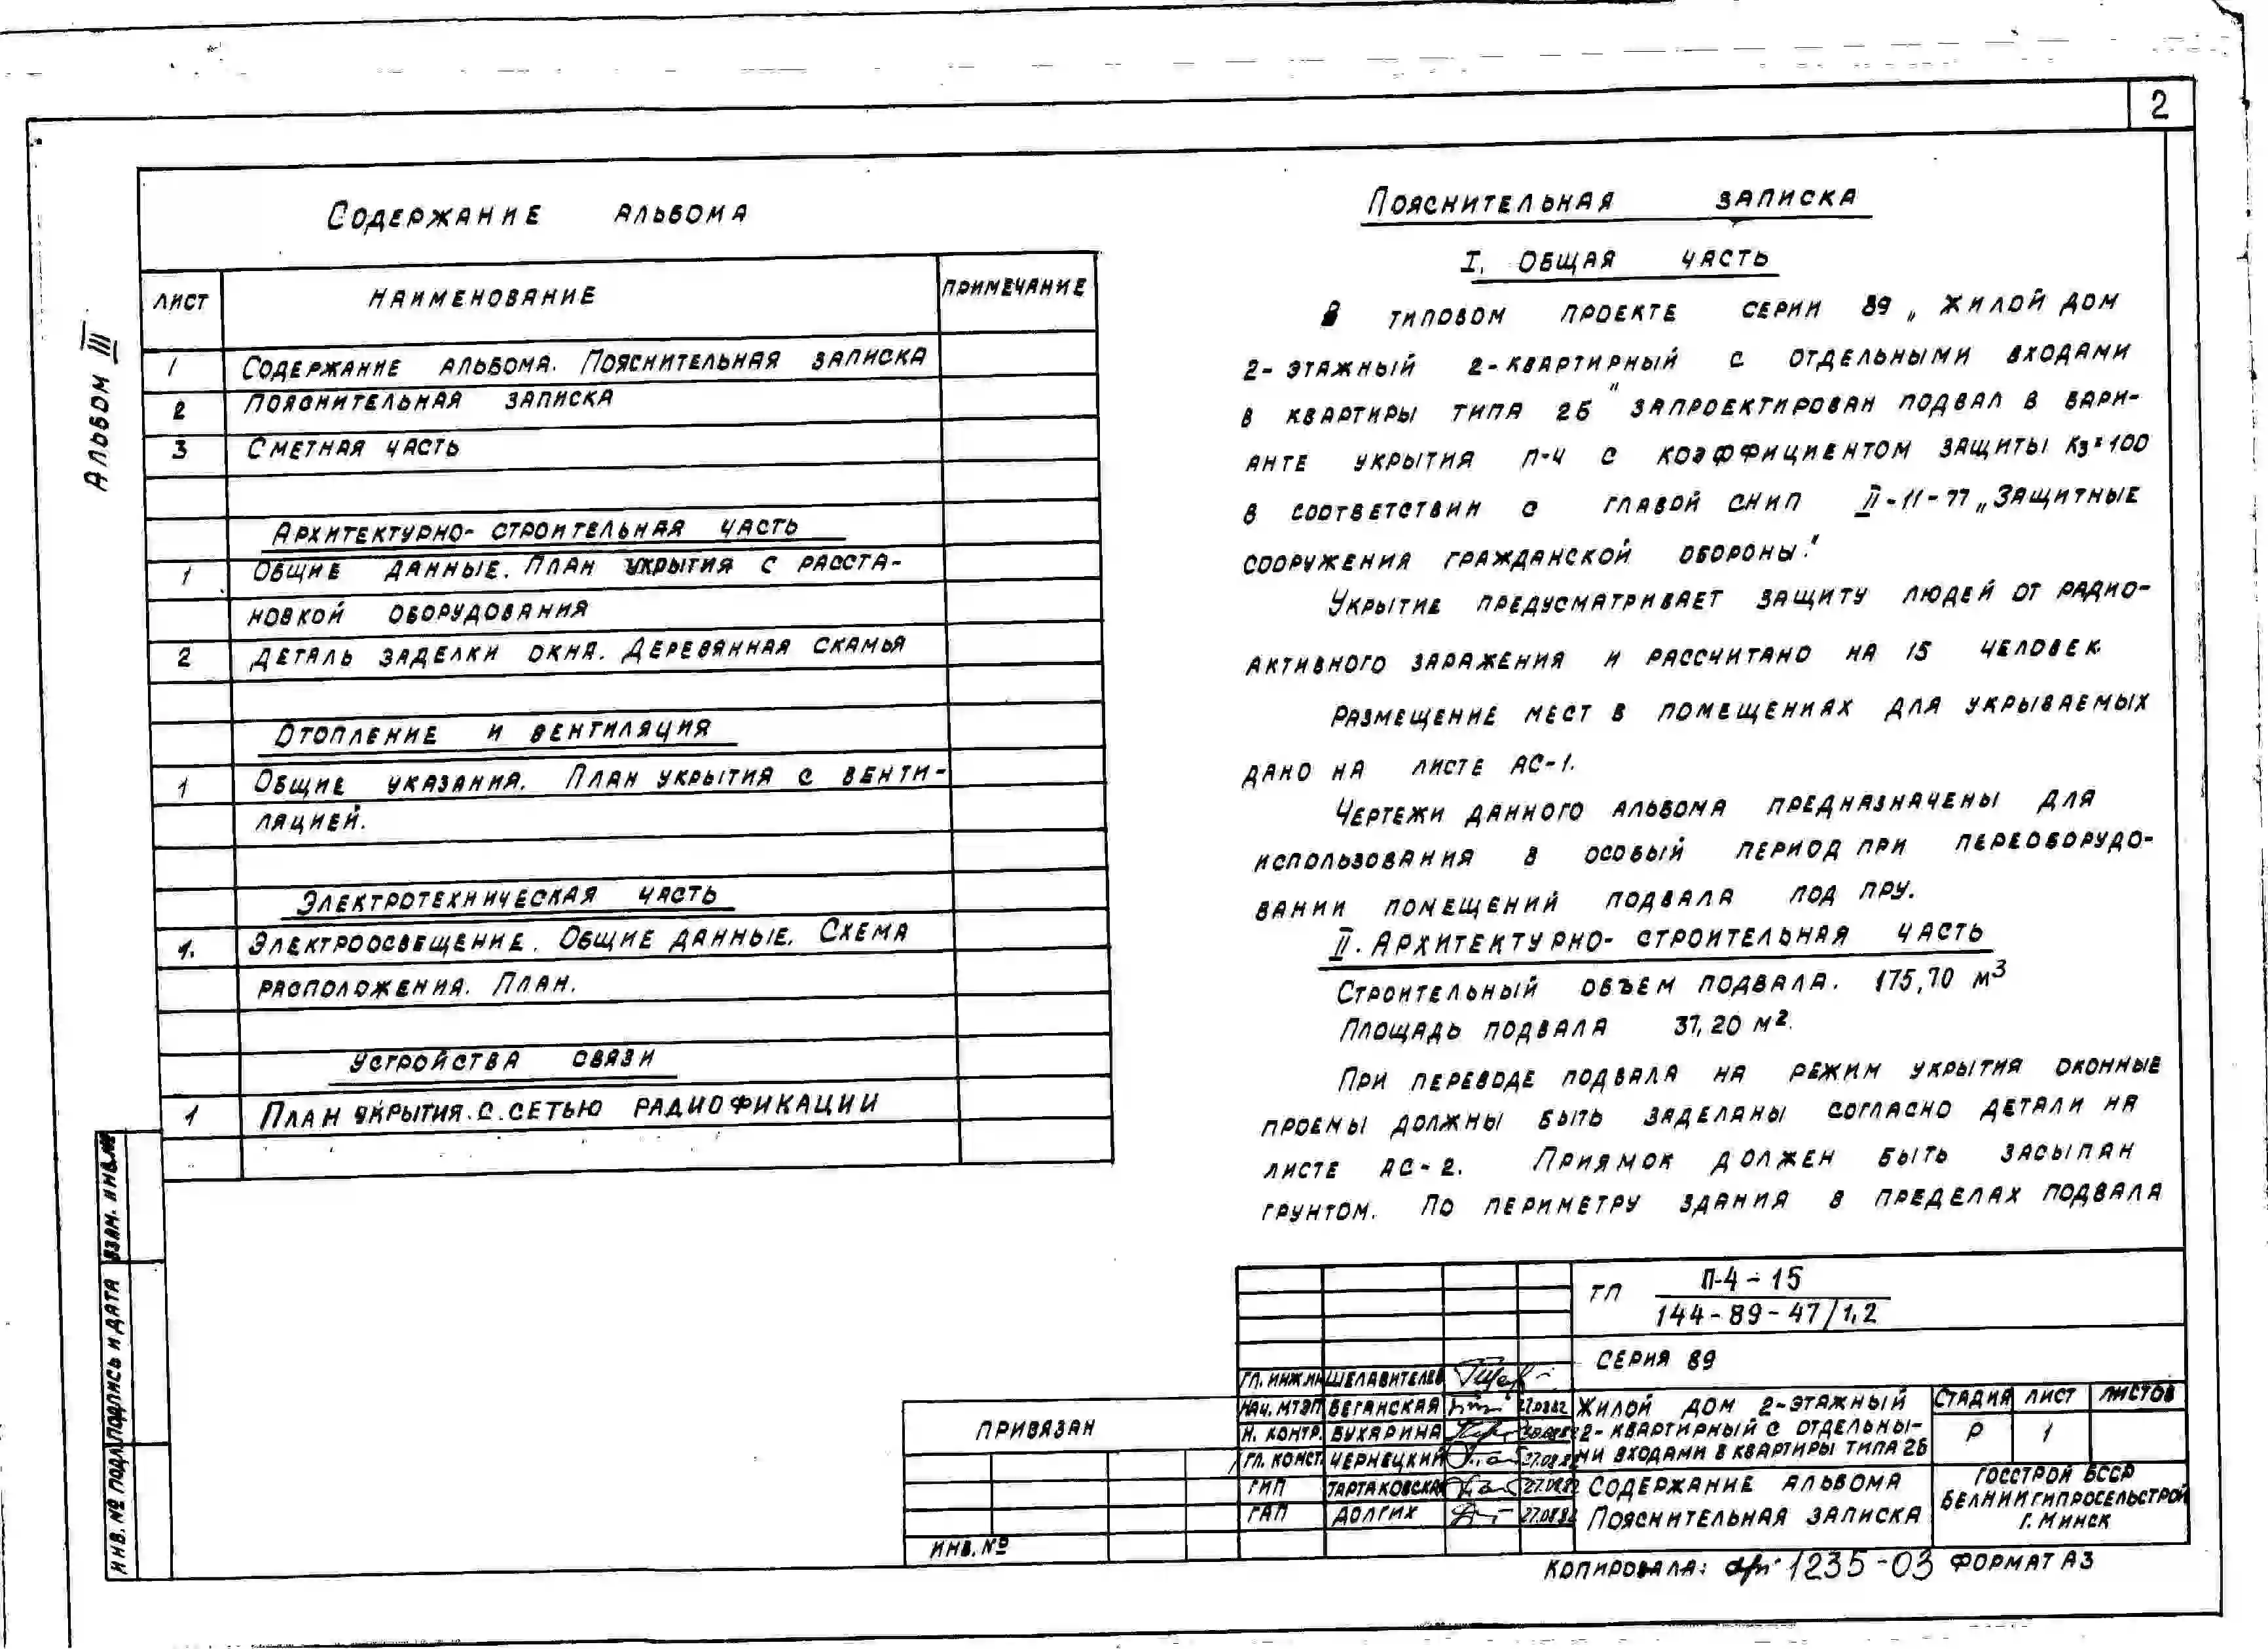 2
Альбом III
Содержание альбома
лист
Наименование
Примечание
1 Содержание альбома. Пояснительная записка
2 Пояснительная записка
3 Сметная часть
Архитектурно-строительная часть
1 Общие данные. План укрытия с расста-
новкой оборудования
2 Деталь заделки окна. Деревянная скамья
Отопление и вентиляция
1 Общие указания. План укрытия с венти-
ляцией.
Электротехническая часть
1. Электроосвещение. Общие данные. Схема
расположения. План.
Устройства связи
1 План укрытия с сетью радиофикации
Пояснительная записка
I. Общая часть
В типовом проекте серии 89 „Жилой дом
2-этажный 2-квартирный с отдельными входами
в квартиры типа 2Б" запроектирован подвал в вари-
анте укрытия П-4 с коэффициентом защиты Кз=100
в соответствии с главой СНиП II-11-77 „Защитные
сооружения гражданской обороны."
Укрытие предусматривает защиту людей от радио-
активного заражения и рассчитано на 15 человек.
Размещение мест в помещениях для укрываемых
дано на листе АС-1.
Чертежи данного альбома предназначены для
использования в особый период при переоборудо-
вании помещений подвала под ПРУ.
II. Архитектурно-строительная часть
Строительный объем подвала. 175,70 м3
Площадь подвала 37,20 м2.
При переводе подвала на режим укрытия оконные
проемы должны быть заделаны согласно детали на
листе АС-2. Приямок должен быть засыпан
грунтом. По периметру здания в пределах подвала
ТП П-4-15
144-89-47/1,2
серия 89
Гл. инж. ин Шелавителев
Нач. МТЭП Беганская 27.08.82
Н. контр. Бухарина
Гл. конст. Чернецкий 27.08.82
ГИП Тартаковска 27.08.82
ГАП Долгих 27.08.82
Жилой дом 2-этажный
2-квартирный с отдельны-
ми входами в квартиры типа 2Б
Стадия Лист Листов
Р 1
Содержание альбома
Пояснительная записка
Госстрой БССР
БелНИИгипросельстрой
г. Минск
Привязан
Инв. №
Взам. инв. №
Подпись и дата
Инв. № подл.
Копировала: 1235-03 Формат А3